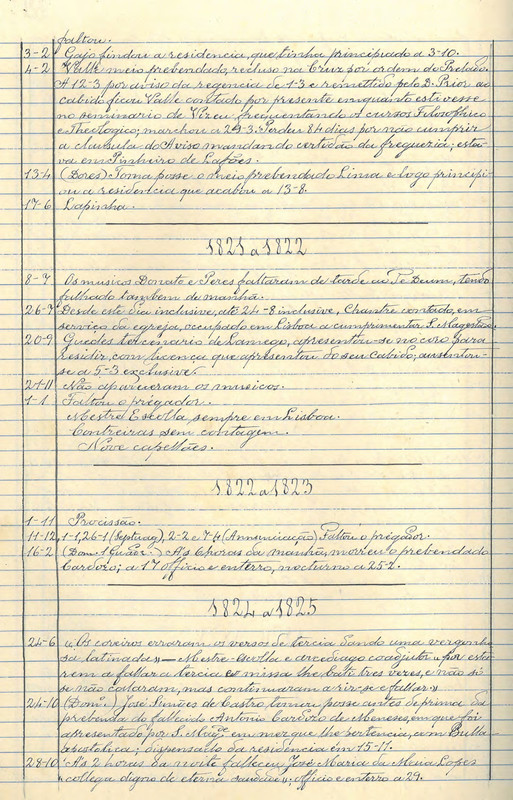 faltou.
3-2 Gajo findou a residencia, que tinha principiado a 3-10.
4-2 Valle meio prebendado, recluso na Cruz por ordem do Prelado.
A 12-3 por aviso da regencia de 1-3 e remettido pelo D. Prior ao
cabido ficou Valle contado por presente emquanto estivesse
no seminario de Vizeu frequentando os cursos Filosophico
e Theologico; marchou a 29-3. Perdeu 84 dias por não cumprir
a clausula do Aviso mandando certidão da freguezia; esta-
va em Pinheiro de Lafões.
13-4 (Dores) Toma posse o meio prebendado Lima e logo principi-
ou a residencia que acabou a 13-8.
17-6 Lapinha.
1821 a 1822
8-7 Os musicos Donato e Peres faltaram de tarde ao Te Deum, tendo
falhado tambem de manhã.
26-7 Desde este dia inclusive, até 24-8 inclusive, Chantre contado, em
serviço da egreja, occupado em Lisboa a cumprimentar S. Magestade.
20-9 Guedes tercenario de Lamego, apresentou-se no coro para
residir, com licença que apresentou do seu Cabido; ausentou-
se a 5-3 exclusive.
21-11 Não appareceram os musicos.
1-1 Faltou o prégador.
Mestre Escolla sempre em Lisboa.
Contreiras sem contagem.
Nove capellães.
1822 a 1823
1-11 Procissão.
11-12, 1-1, 26-1 (Septuag), 2-2 e 7-4 (Annunciação) Faltou o prégador.
16-2 (Dom. 1 Quad.) A's 8 horas da manhã, morreu o prebendado
Cardozo; a 17 officio e enterro, nocturno a 25-2.
1824 a 1825
24-6 «Os coreiros erraram os versos de tercia dando uma vergonho
sa latinada» — Mestre-escolla e arcediago coadjutor «por esta-
rem a fallar a tercia e missa lhe bate tres vezes, e não só
se não callaram, mas continuaram a rir-se e fallar.»
24-10 (Dom.) José Simões de Castro tomou posse antes de prima da
prebenda do fallecido Antonio Cardozo de Menezes, em que foi
apresentado por S. Mag.e em mez que lhe pertencia, com Bulla
apostolica; dispensado da residencia em 15-11.
28-10 A's 2 horas da noite falleceu José Maria da Maia Lopes
«collega digno de eterna saudade»; officio e enterro a 29.